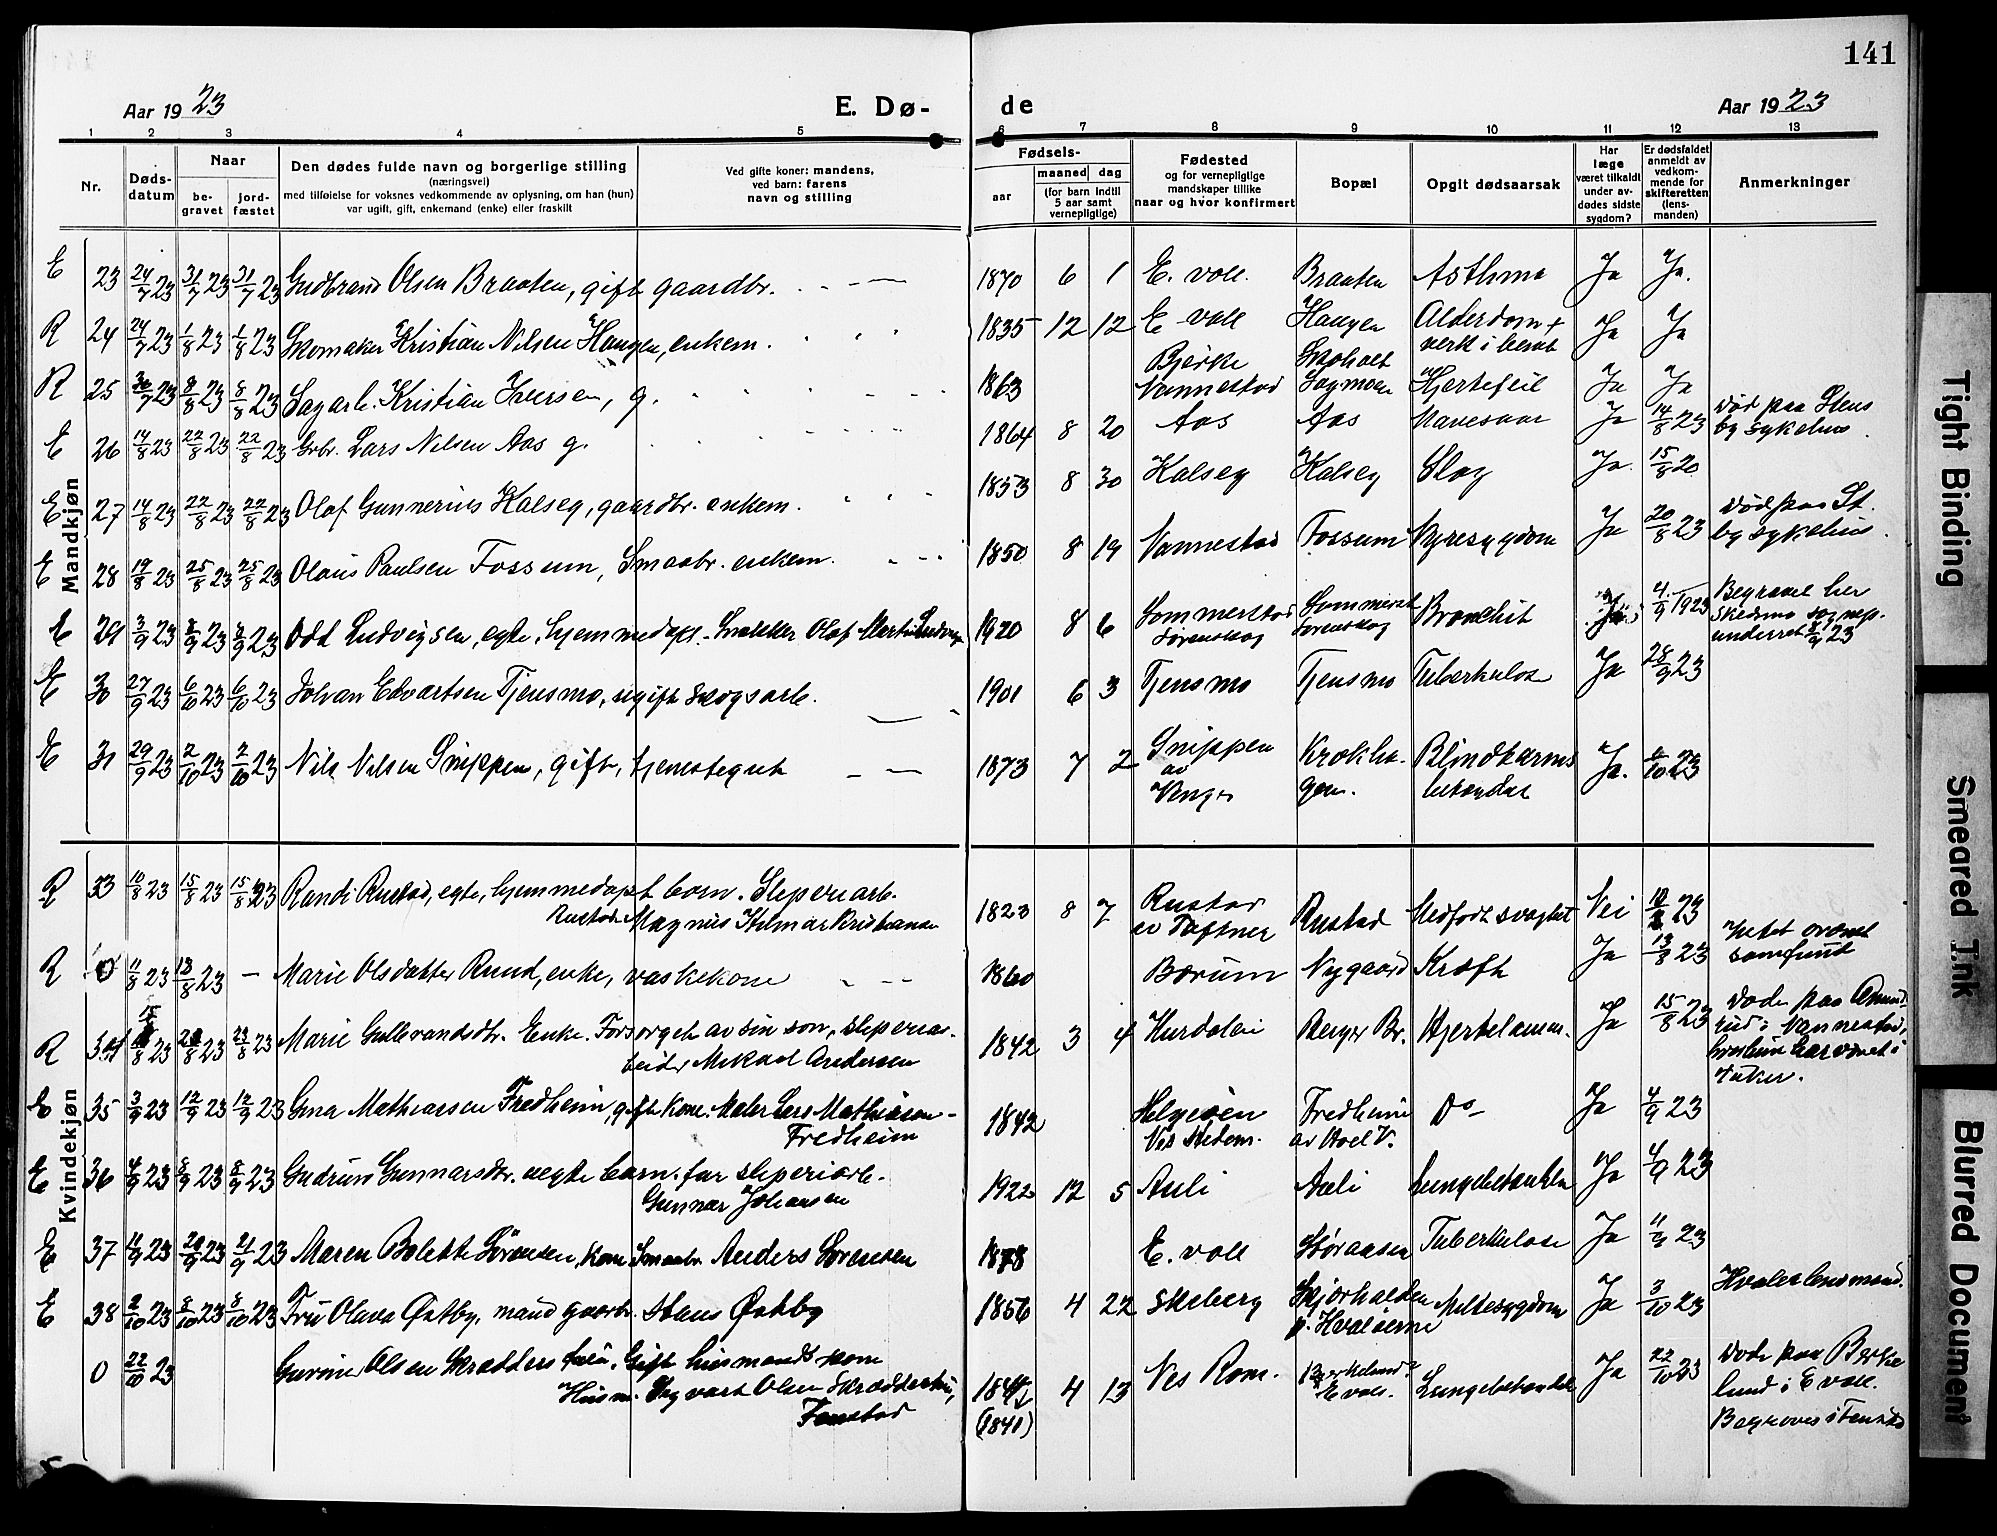 141
Aar 1923
E. Dø-
de
Aar 1923
1 2 3 4 5 6 7 8 9 10 11 12 13
Nr.
Døds-
datum
Naar
be-
gravet
jord-
fæstet
Den dødes fulde navn og borgerlige stilling
(næringsvei)
med tilføielse for voksnes vedkommende av oplysning, om han (hun)
var ugift, gift, enkemand (enke) eller fraskilt
Ved gifte koner: mandens,
ved barn: farens
navn og stilling
Fødsels-
aar
maaned dag
(for barn indtil
5 aar samt
vernepligtige)
Fødested
og for vernepligtige
mandskaper tillike
naar og hvor konfirmert
Bopæl
Opgit dødsaarsak
Har
læge
været tilkaldt
under av-
dødes sidste
sygdom?
Er dødsfaldet
anmeldt av
vedkom-
mende for
skifteretten
(lens-
manden)
Anmerkninger
Mandkjøn
E 23 24/7 23 31/7 23 31/7 23 Gudbrand Olsen Braaten, gift gaardbr. 1870 6 1 E. voll. Braaten Asthma Ja Ja.
R 24 24/7 23 1/8 23 1/8 23 Skomaker Kristian Nilsen Haugen, enkem. 1835 12 12 E voll Haugen Alderdom + Ja Ja
Bjerke
R 25 30/7 23 8/8 23 8/8 23 Sagarb. Kristian Iversen, g. 1863 Nannestad Sagmoen Hjertefeil Ja Ja
E 26 14/8 23 22/8 23 22/8 23 Grbr. Lars Nilsen Aas g. 1864 8 20 Aas Aas Mavesaar Ja 14/8 23 Død paa Stens
by sykehus.
E 27 14/8 23 22/8 23 22/8 23 Olaf Gunnerius Kalseg, gaardbr. enkem. 1853 8 30 Kalseg Kalseg Slag Ja. 15/8 20
E 28 19/8 23 25/8 23 25/8 23 Olaus Paulsen Fossum, Smaabr. enkem. 1850 8 19 Nannestad Fossum Nyresygdom Ja 20/8 23 Død paa St.
by sykehus.
E 29 3/9 23 Odd Ludvigsen, egte, hjemmedøpt. Snekker Olaf Martin Ludvigs 1920 8 6 Sommerstad Bronchit Ja 4/9 1923 Begravet her
Sørenskog Sørenskog Skedsmo sognep.
underret 8/9 23
E 30 27/9 23 6/10 23 6/10 23 Johan Edvartsen Tjensmo, ugift skogsarb. 1901 6 3 Tjensmo Tjensmo Tuberkulose Ja 28/9 23
E 31 29/9 23 2/10 23 2/10 23 Nils Nilsen Snippen, gift, tjenestegut 1873 7 2 Snippen Krokha- Blindtarms Ja. 23
av gen. betændelse
Kvindekjøn
R 33 10/8 23 15/8 23 15/8 23 Randi Rustad, egte, hjemmedøpt barn. Sliperiarb. 1823 8 7 Rustad Rustad Medfødt svaghet Nei 23
Rustad Magnus Hilmar Kristiansen av
R 0 11/8 23 18/8 23 — Marie Olsdatter Ruud, enke, vaskekone 1860 Bærum Nygaard Kræft Ja 13/8 23
samfund
R 34 23 23 23/8 23 Marie Gulbrandsdtr. Enke. Forsørget av sin søn, sliperiar- 1842 3 4 Hurdalen Berger Br. Hjertelammelse. Ja 15/8 23 Døde paa Amund
beider Mikael Andersen rud i Nannestad,
hvorhun har været i
E 35 3/9 23 12/9 23 12/9 23 Gina Mathiassen Fredheim, gift kone. Maler Lars Mathiasen 1842 Helgesen Fredheim Do Ja 4/9 23
Fredheim Nes Hedem.
E 36 4/9 23 8/9 23 8/9 23 Gudrun Gunnarsdtr. uegte barn. far sliperiarb. 1922 12 5 Auli Auli Lungebetændelse Ja 4/9 23
Gunnar Johansen
E 37 11/9 23 23 21/9 23 Maren Bolette Sørensen, kone Smaabr. Anders Sørensen 1878 E. voll Tuberkulose Ja 11/9 23
E 38 2/10 23 8/10 23 8/10 23 Fru Olava Østby, mand gaardbr. Hans Østby 1856 4 22 Skiberg Skjærhalden Nyresygdom Ja 3/10 23 Hvaler lensmand.
p. Hvaløerne
0 22/10 23 Gurine Olsen Skrædderstuen, Gift husmandskone 1842 4 13 Nes Rom. Lungebetændelse Ja 22/10 23 Døde paa Birke
Husm. Sigvart Olsen Skrædderstuen, (1841) E voll. lund i E voll.
Fenstad Begraves i Fenstad
Tight Binding
Smeared Ink
Blurred Document